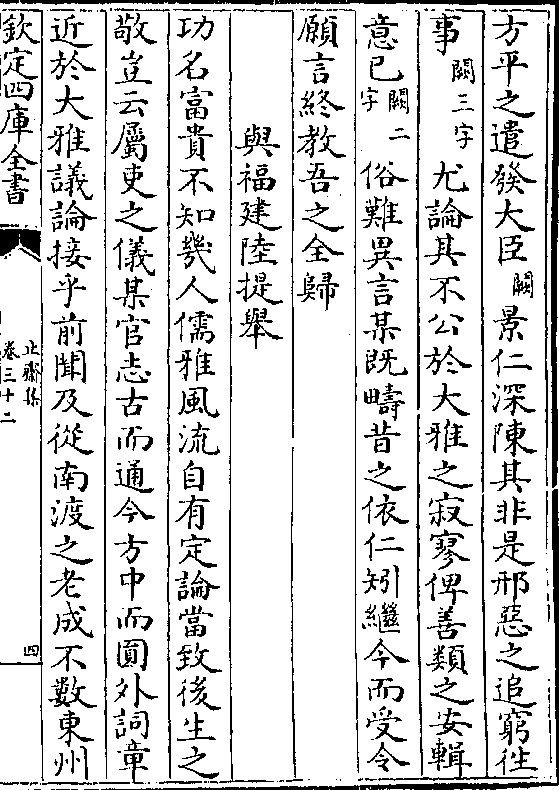 方平之遣發大臣闕景仁深陳其非是邢惡之追窮徃
事闕三字尤論其不公於大雅之寂寥俾善類之安輯
意已闕二字俗難異言某既疇昔之依仁矧繼今而受令
願言終教吾之全歸
與福建陸提舉
功名富貴不知幾人儒雅風流自有定論當致後生之
敬豈云屬吏之儀某官志古而通今方中而圓外詞章
近於大雅議論接乎前聞及從南渡之老成不數東州
欽定四庫全書
止齋集
卷三十二
四